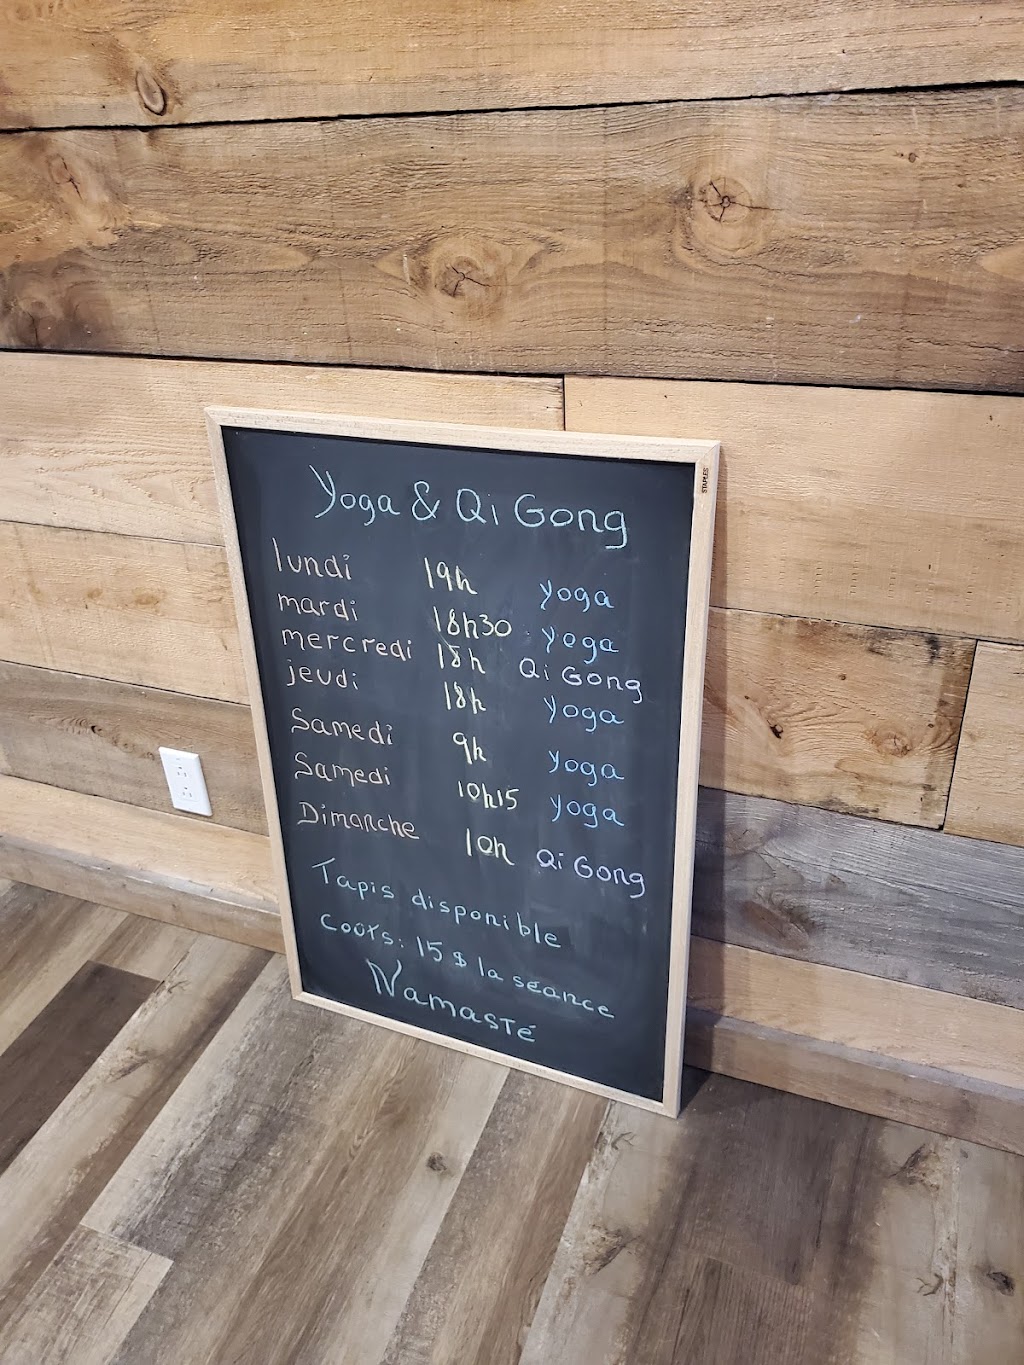 STAPLES
Yoga & Qi Gong
lundi 19h yoga
mardi 18h30 yoga
mercredi 18h Qi Gong
jeudi 18h yoga
Samedi 9h yoga
Samedi 10h15 yoga
Dimanche 10h Qi Gong
Tapis disponible
coûts: 15 $ la séance
Namasté